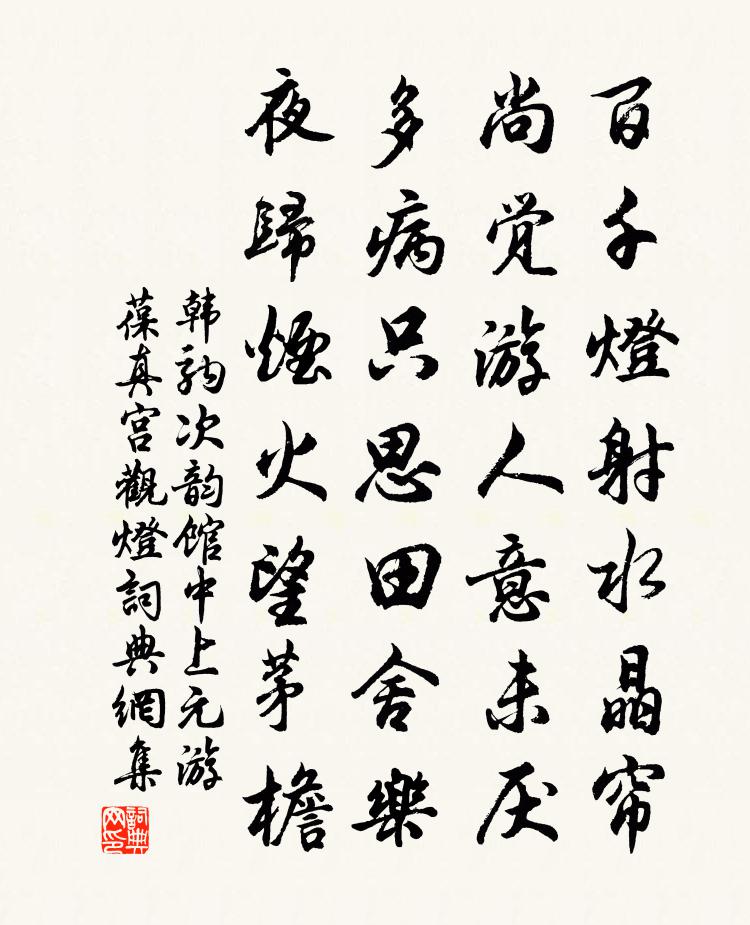 百千燈射水晶帘
尚觉游人意未厌
多病只思田舍樂
夜歸煙火望茅檐
韩驹次韵馆中上元游
葆真宫觀燈詞典網集
詞典网印